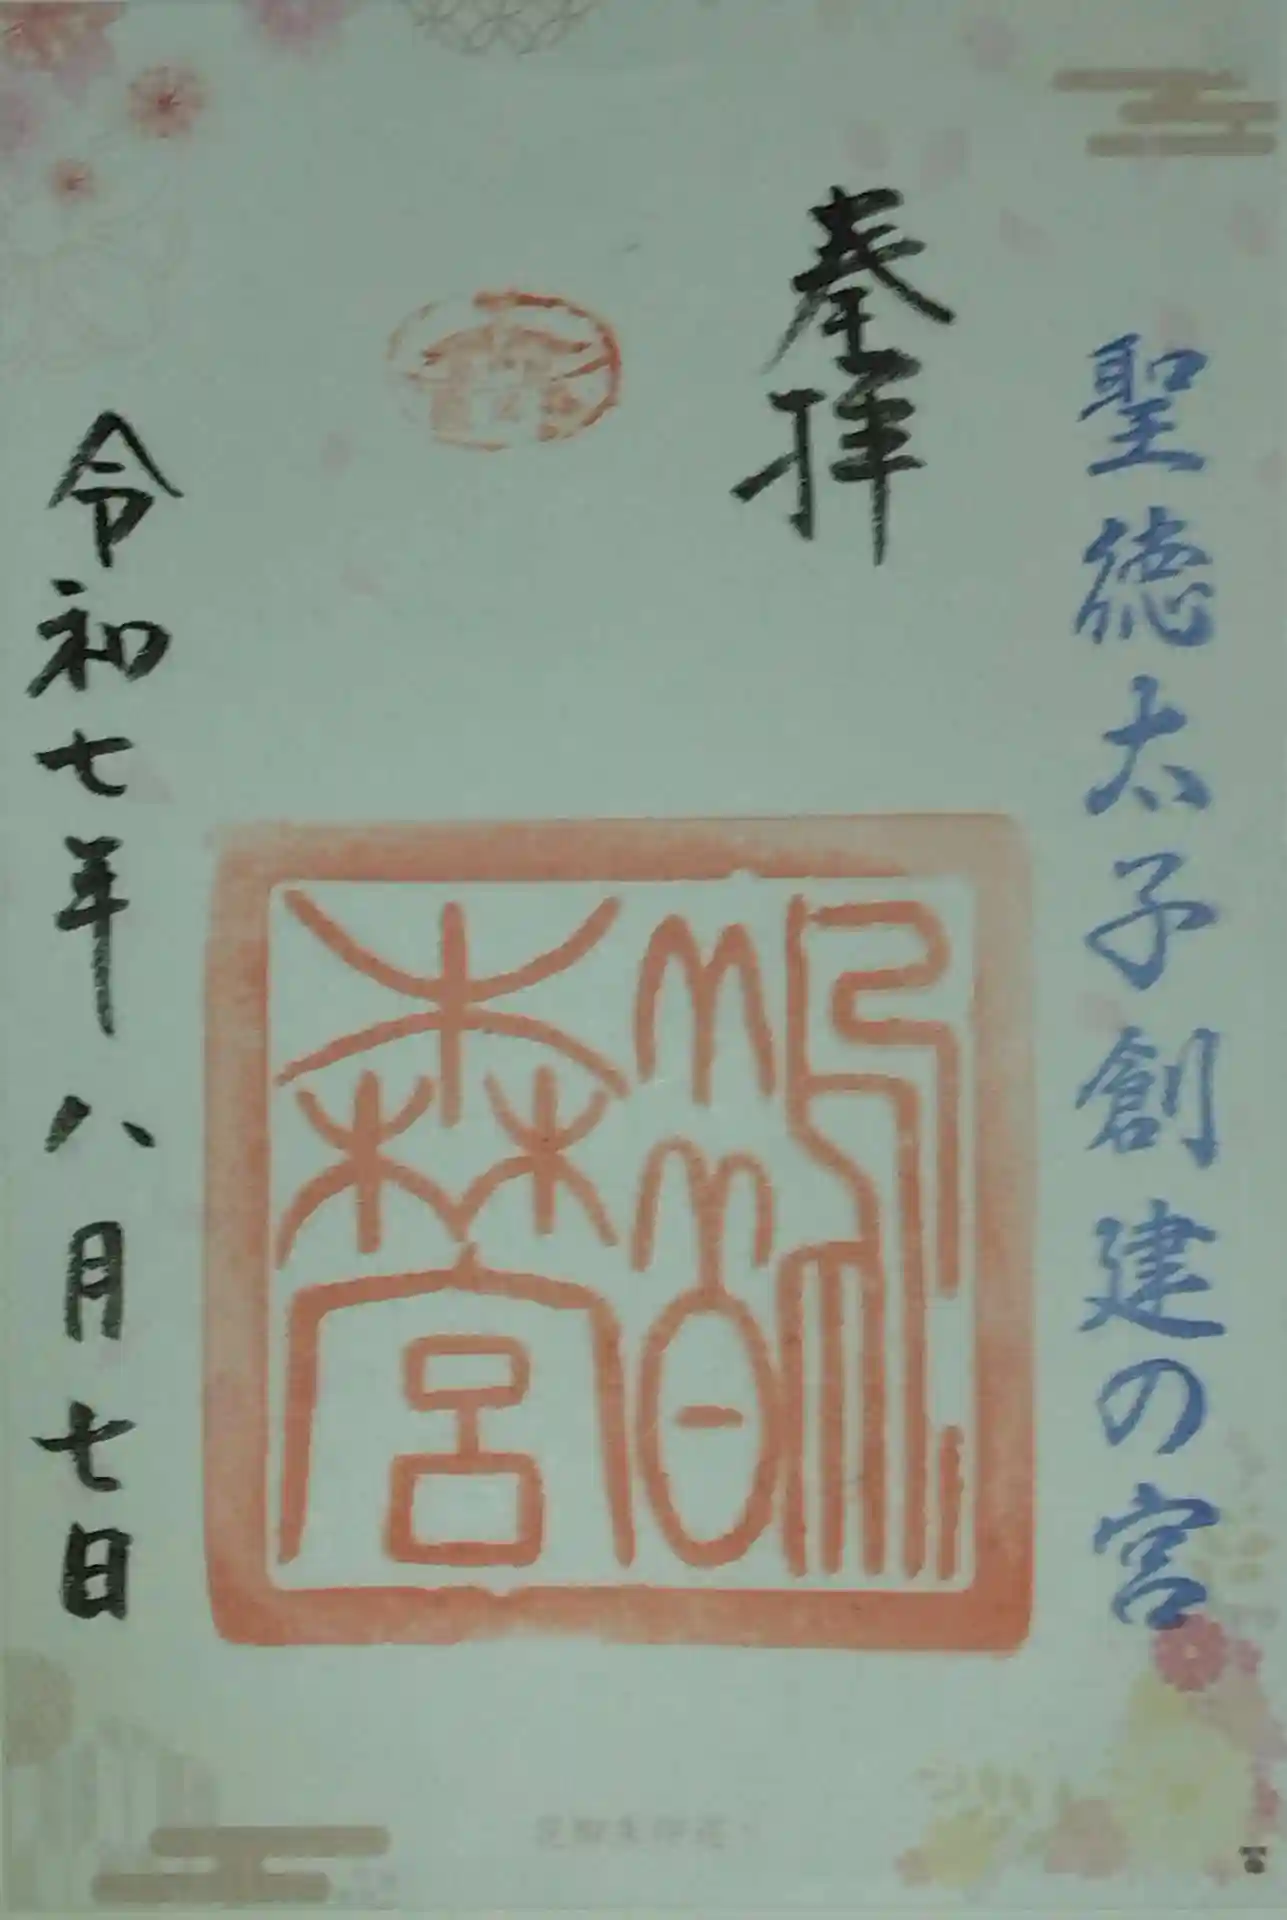 聖徳太子創建の宮
奉拝
鵲森宮
令和七年八月七日